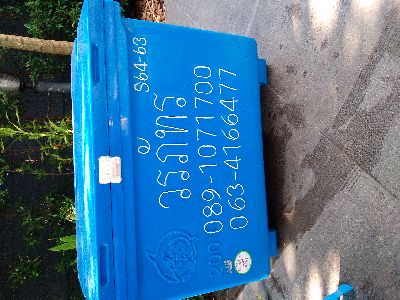 S64-63
วรภัทร
200
089-1071700
063-4166477